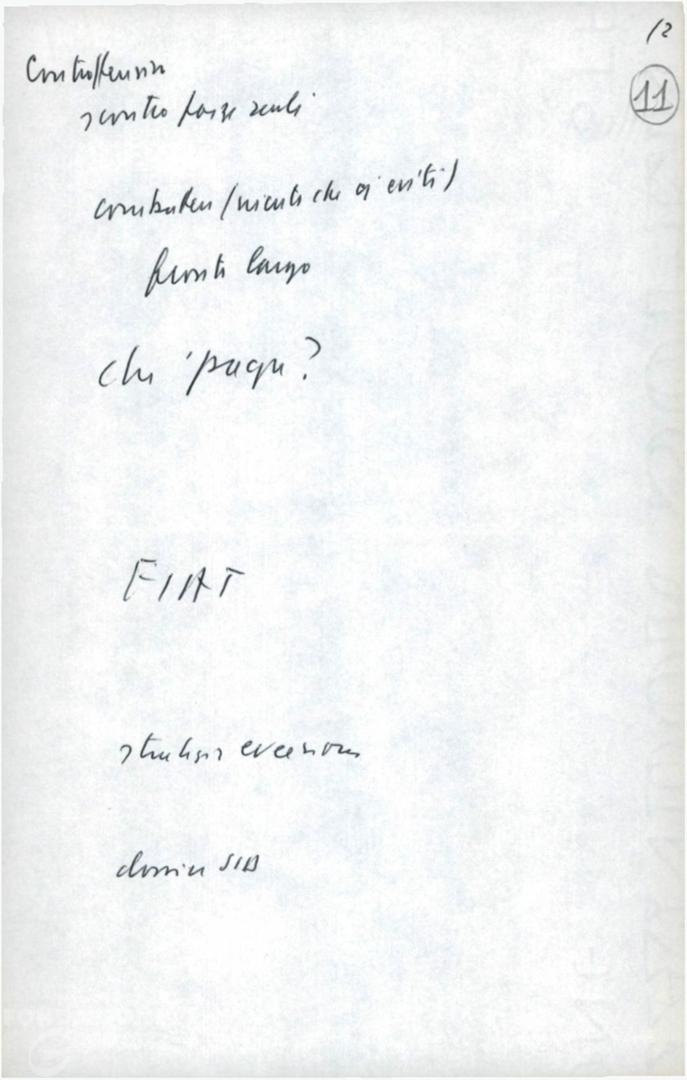 12
11
Controffensiva
scontro forze sociali
combattere (niente che si eviti)
fronte largo
chi paga?
FIAT
strategia eversione
dossier SID